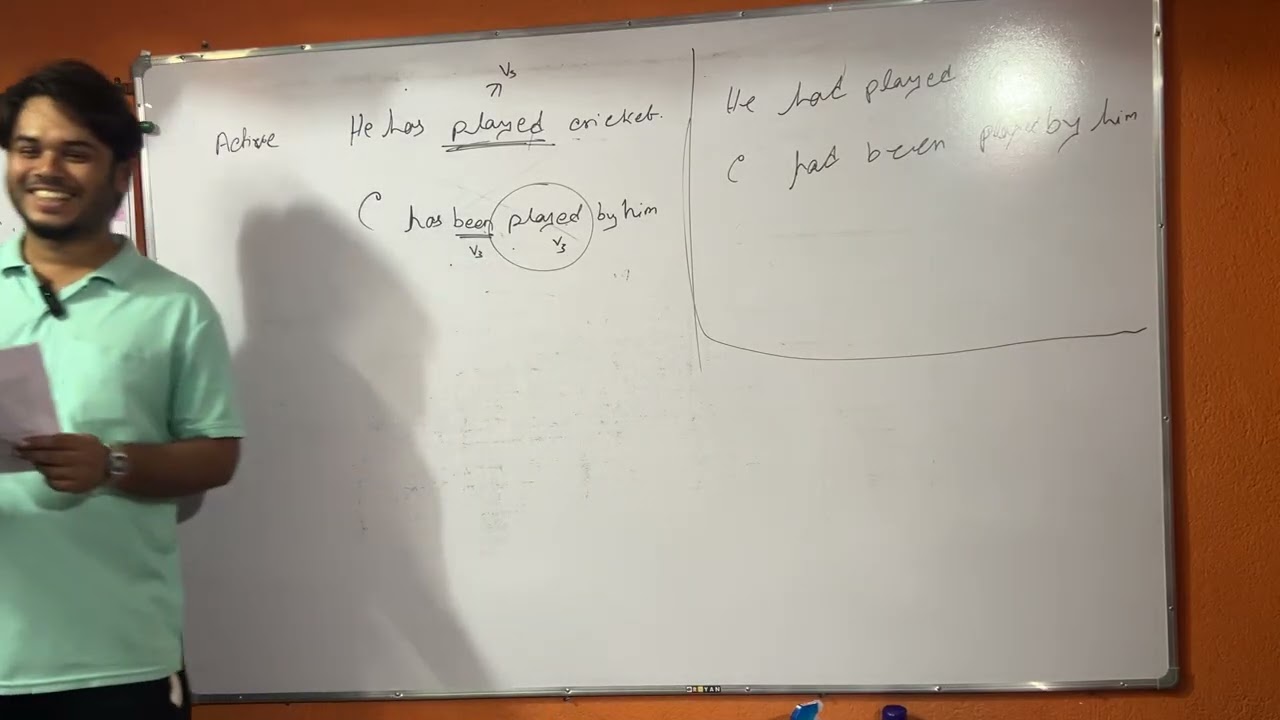 V3
Active He has played cricket.
C has been played by him
V3 V3
He had played
C had been played by him